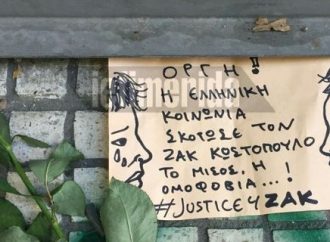 ΟΡΓΗ!!
Η ΕΛΛΗΝΙΚΗ
ΚΟΙΝΩΝΙΑ
ΣΚΟΤΩΣΕ ΤΟΝ
ΖΑΚ ΚΩΣΤΟΠΟΥΛΟ
ΤΟ ΜΙΣΟΣ, Η
ΟΜΟΦΟΒΙΑ...!
#JUSTICE4ZAK